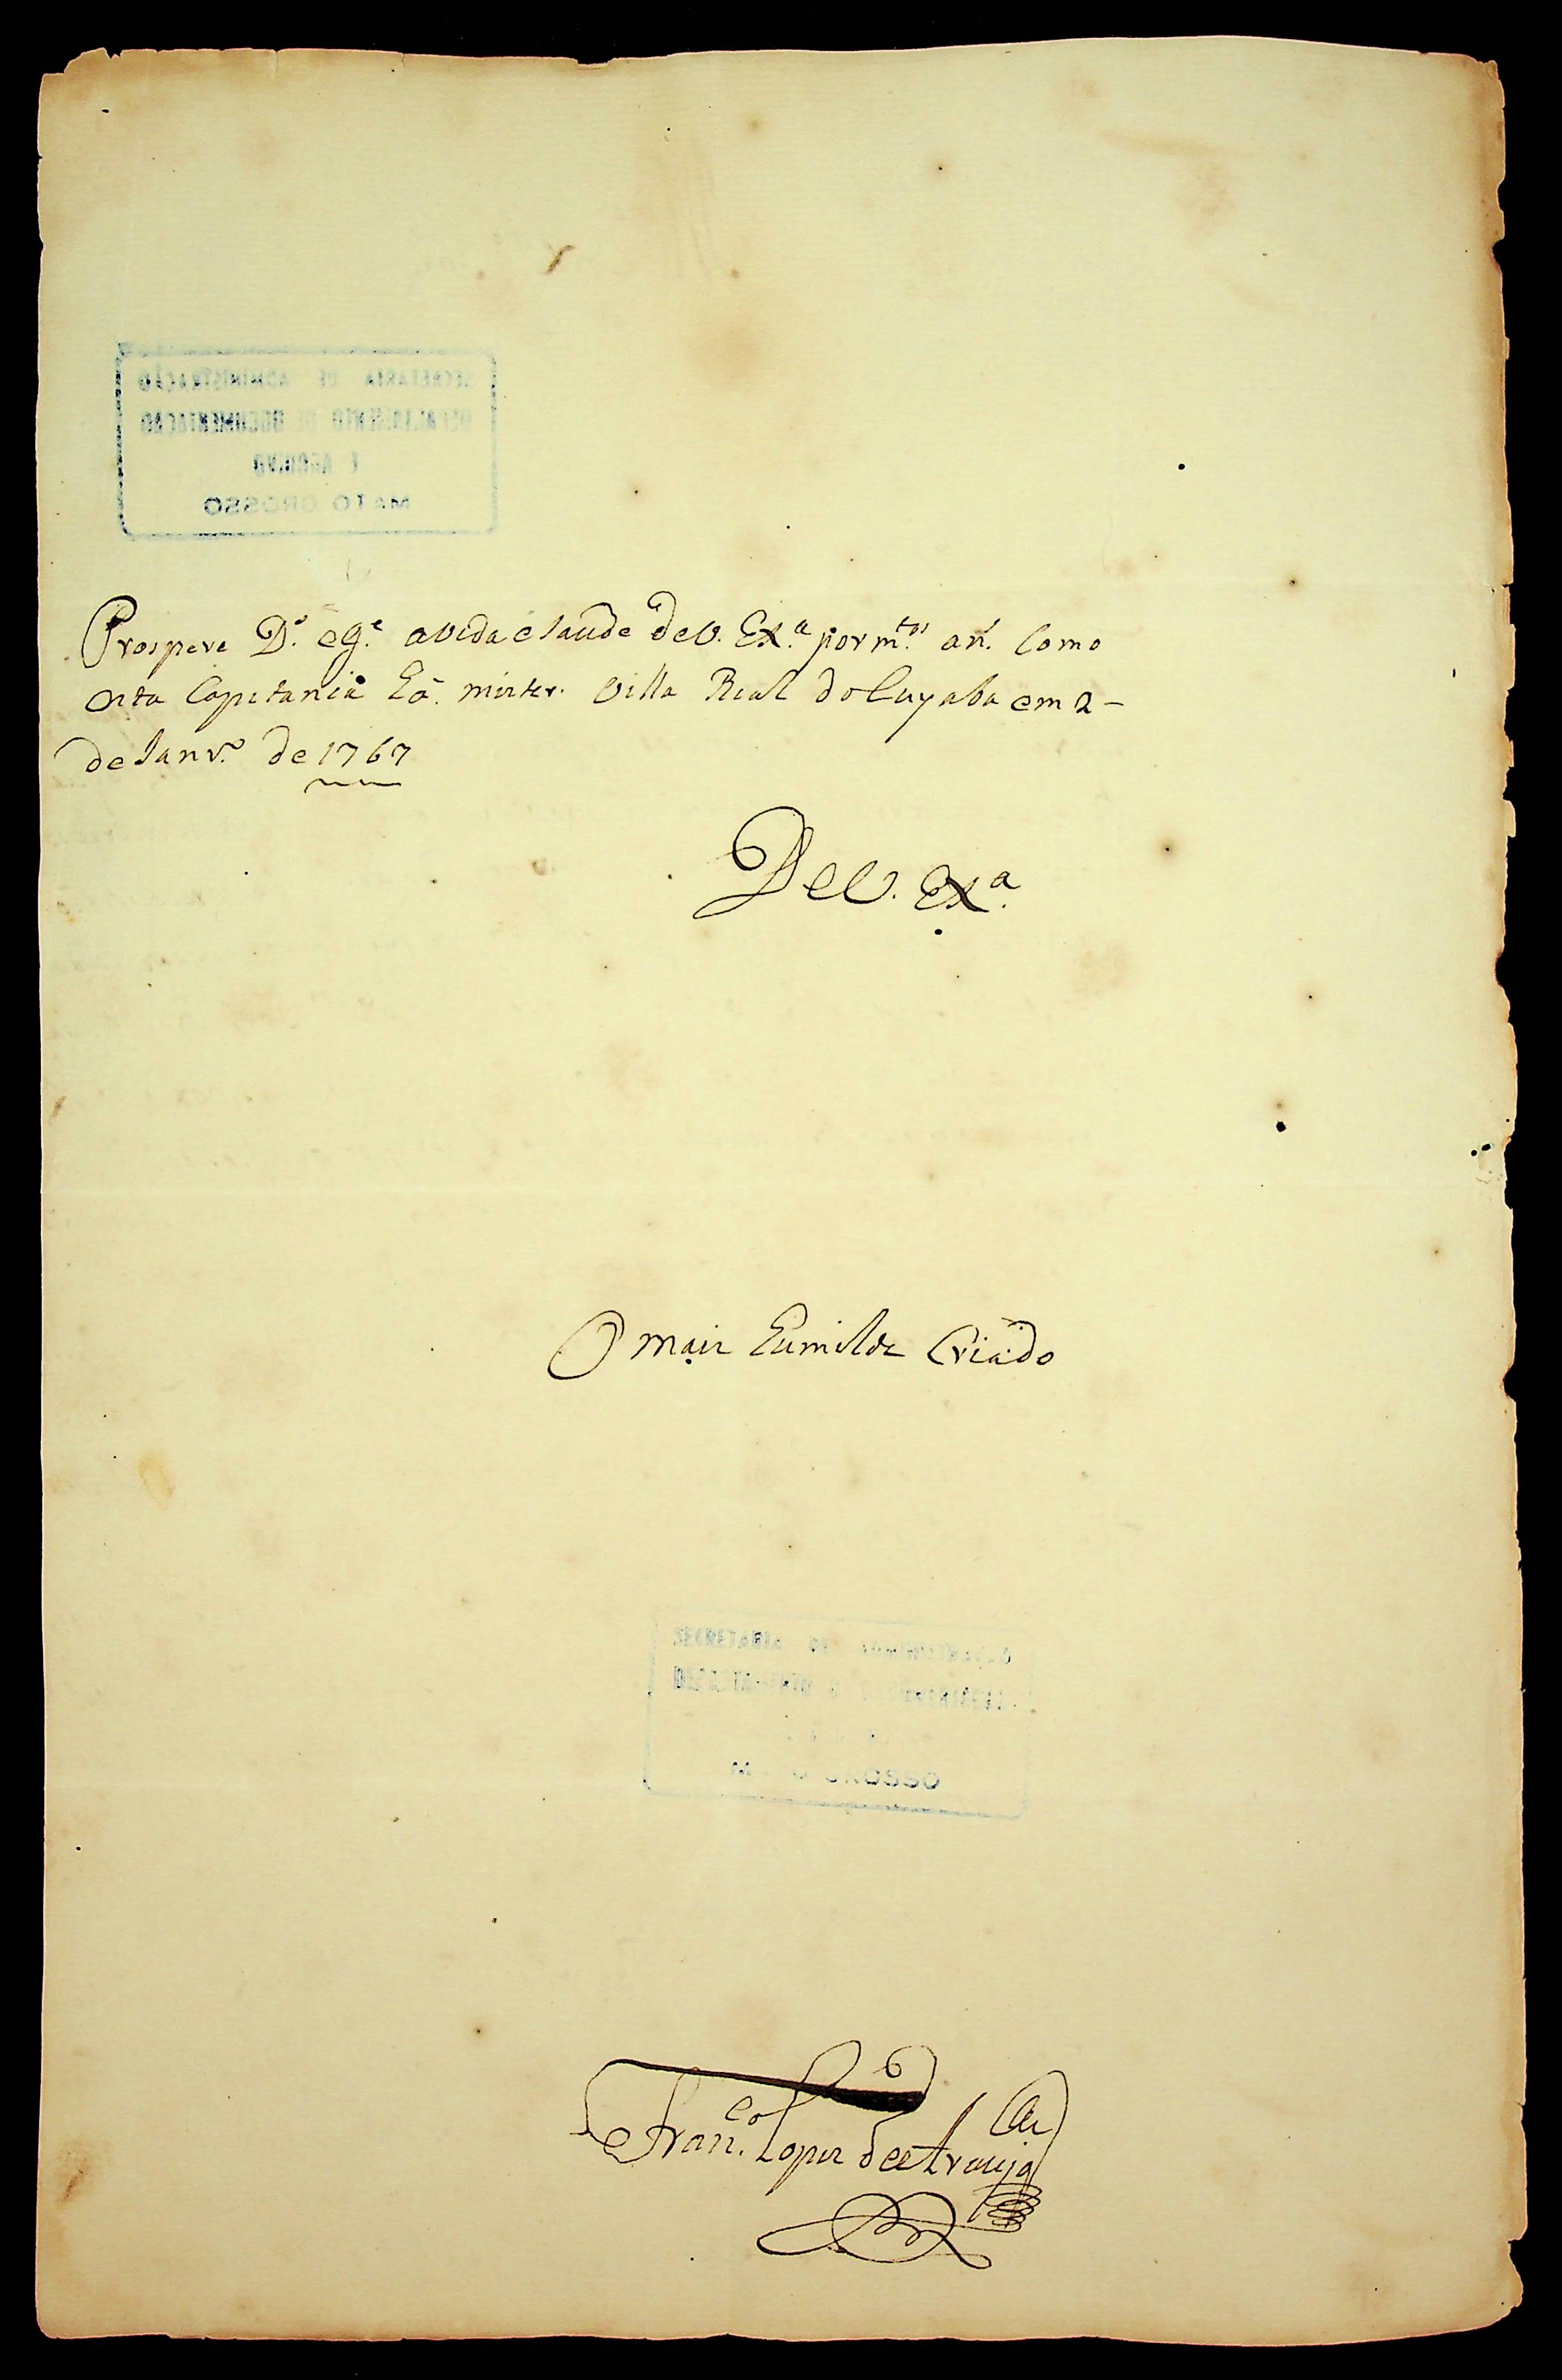 SECRETARIA DE ADMINISTRAÇÃO
DEPARTAMENTO DE DOCUMENTAÇÃO
E ARQUIVO
MATO GROSSO
Prospere D.s e g.e a vida e saude de V. Ex.a por m.tos an.s Como
esta Capitania hâ mister. Villa Real do Cuyaba em 2 -
de Janr.o de 1767
De V. Ex.a
O mais humilde Criado
SECRETARIA DE
GROSSO
Fran.co Lopes de Araujo